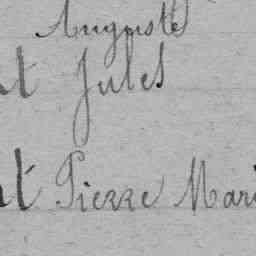 Auguste
t Jules
t Pierre Mari